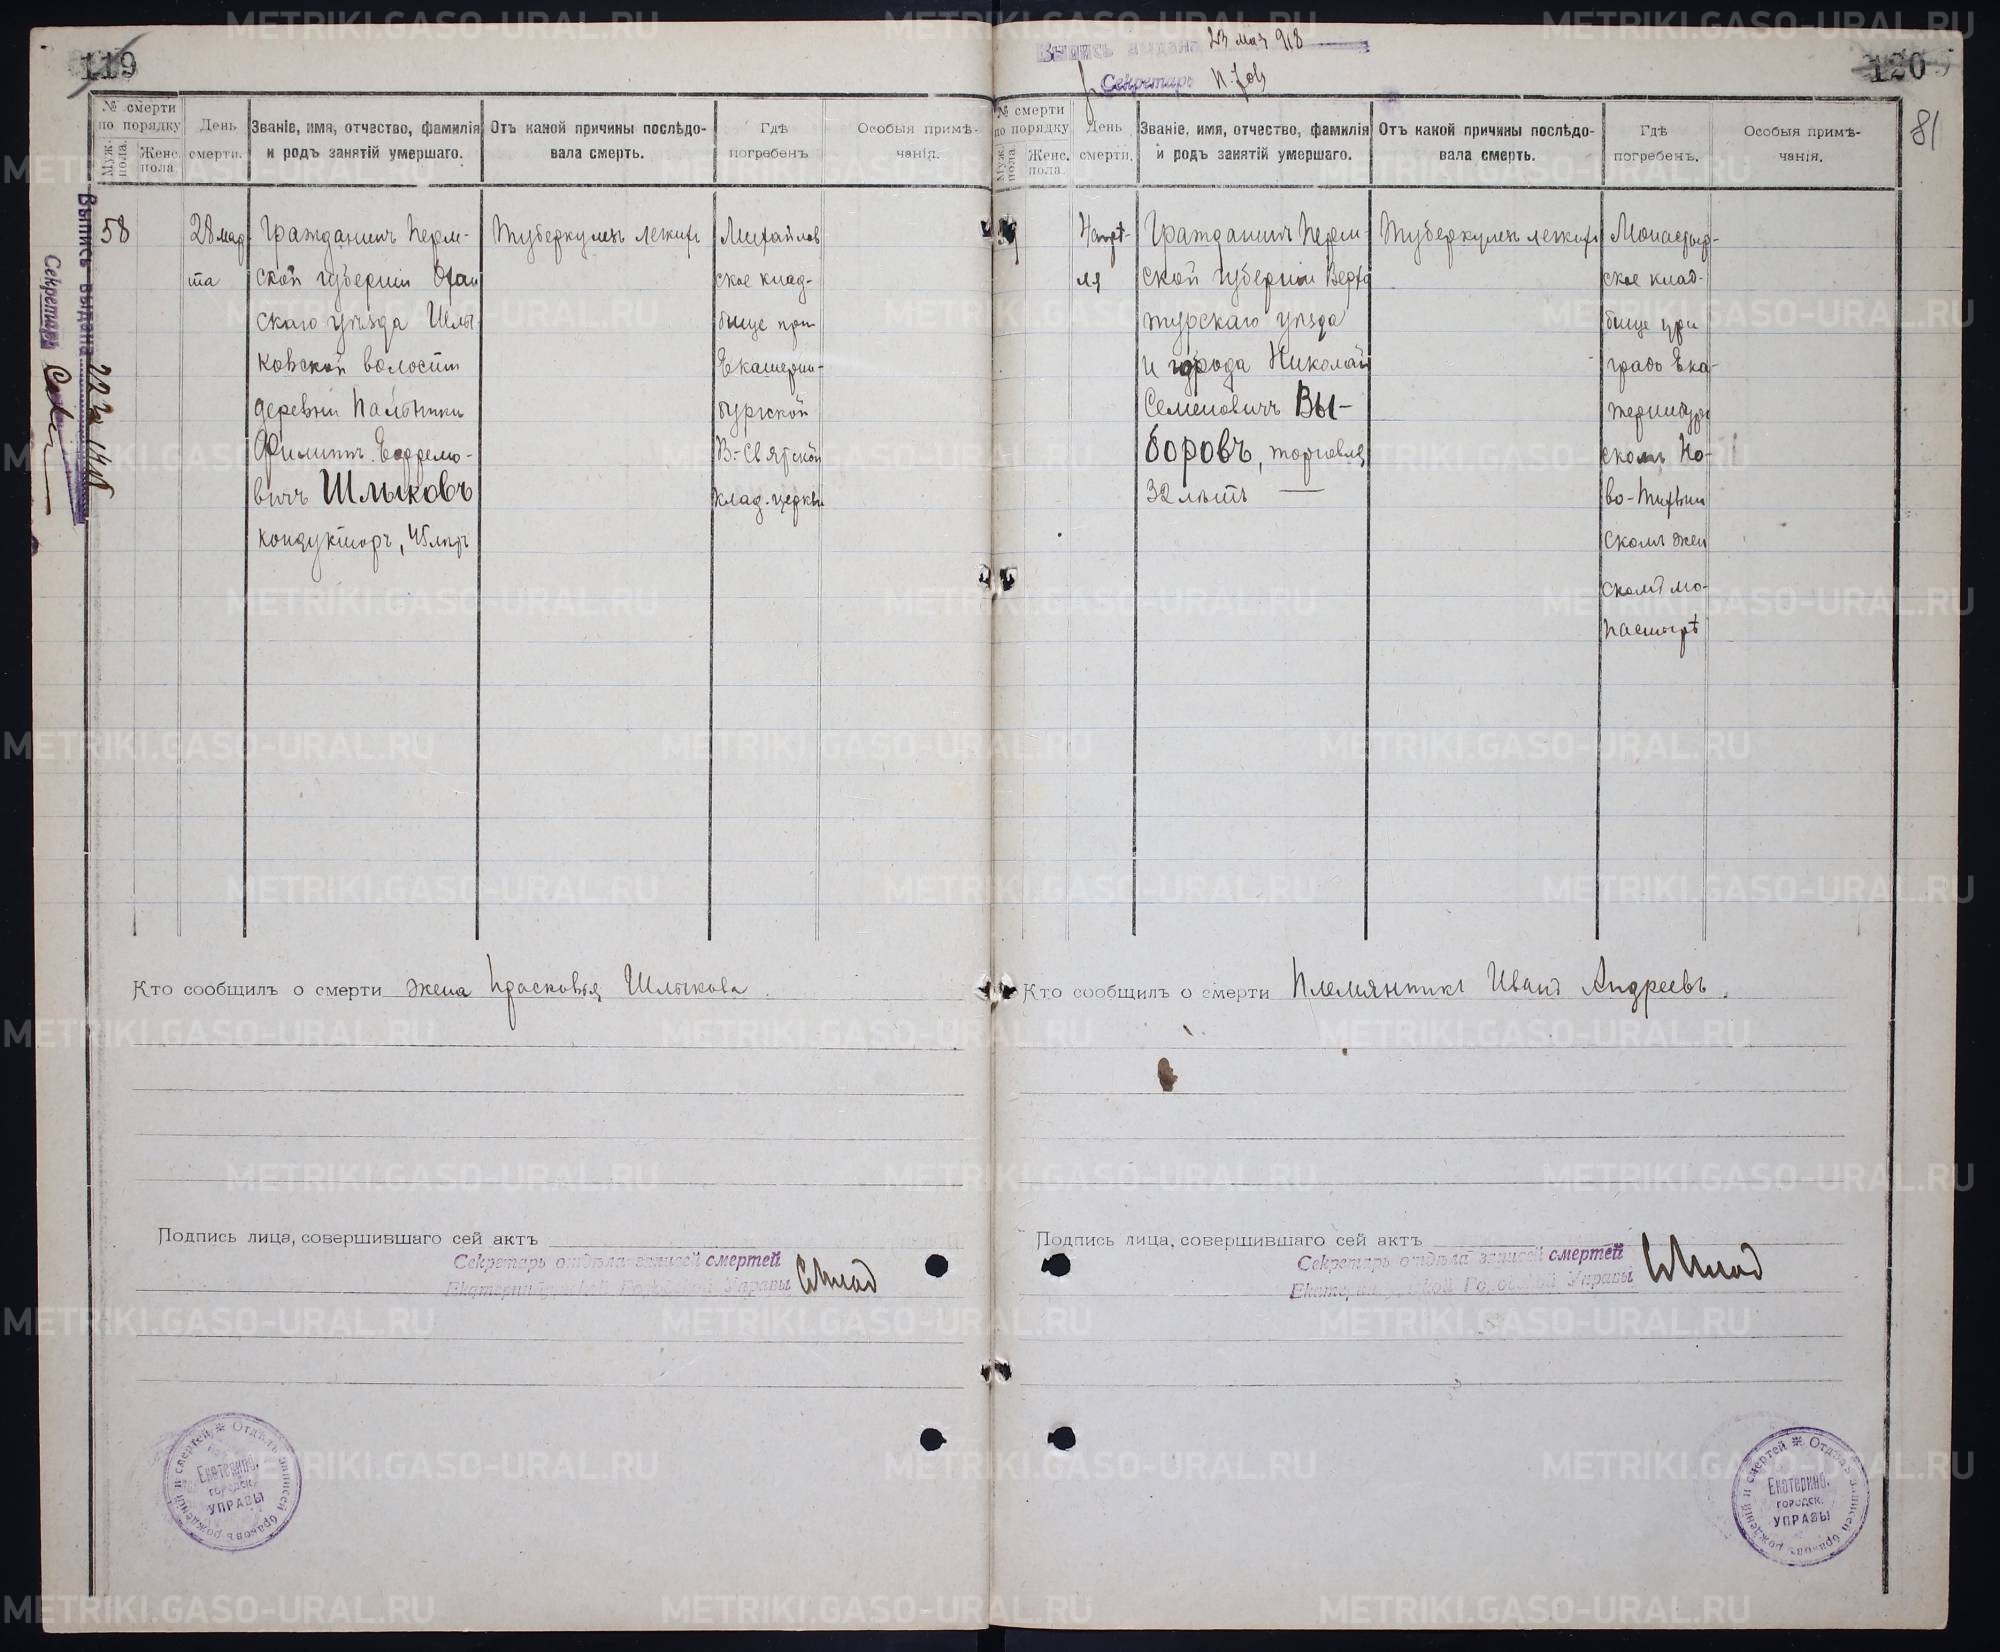 119
№ смерти по порядку
Муж. пола.
Женс. пола.
День смерти.
Званіе, имя, отчество, фамилія
и родъ занятій умершаго.
Отъ какой причины послѣдо-
вала смерть.
Гдѣ
погребенъ
Особыя примѣ-
чанія.
58
28 мар-
та
Гражданинъ Перм-
ской губерніи Охан
скаго уѣзда Шлы-
ковской волости
деревни
Филиппъ Ефремо-
вичъ Шлыковъ
кондукторъ, 45 лѣтъ
Туберкулезъ легкихъ
Михайлов
ское клад-
бище при
Екатерин-
бургской
В-Святской
клад. церкви
Кто сообщилъ о смерти жена Прасковья Шлыкова.
Подпись лица, совершившаго сей актъ
Секретарь отдѣла записей смертей
Екатеринбургской Городской Управы
Отдѣлъ записей браковъ рожденій и смертей
Екатеринб.
городск.
УПРАВЫ
Выпись выдана
Секретарь
Выпись выдана 23 мая 918
Секретарь
120
81
№ смерти по порядку
Муж. пола.
Женс. пола.
День смерти.
Званіе, имя, отчество, фамилія
и родъ занятій умершаго.
Отъ какой причины послѣдо-
вала смерть.
Гдѣ
погребенъ.
Особыя примѣ-
чанія.
ля
Гражданинъ Перм-
ской губерніи Верхо
турскаго уѣзда
и города Николай
Семеновичъ Вы-
боровъ, торговля,
32 лѣтъ —
Туберкулезъ легкихъ
Монастыр-
ское клад-
бище при
градо Ека-
теринбург
скомъ Но-
во-Тихвин
скомъ жен
скомъ мо-
настырѣ
Кто сообщилъ о смерти Племянникъ Иванъ Андреевъ.
Подпись лица, совершившаго сей актъ
Секретарь отдѣла записей смертей
Екатеринбургской Городской Управы
Отдѣлъ записей браковъ рожденій и смертей
Екатеринб.
городск.
УПРАВЫ
METRIKI.GASO-URAL.RU